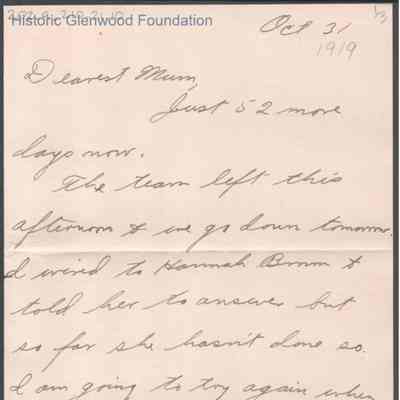 Historic Glenwood Foundation
Oct 31
1919
Dearest Mum,
Just 52 more
days now.
The team left this
afternoon & we go down tomorrow.
I wired to Hannah Brown &
told her to answer but
so far she hasn't done so.
I am going to try again when